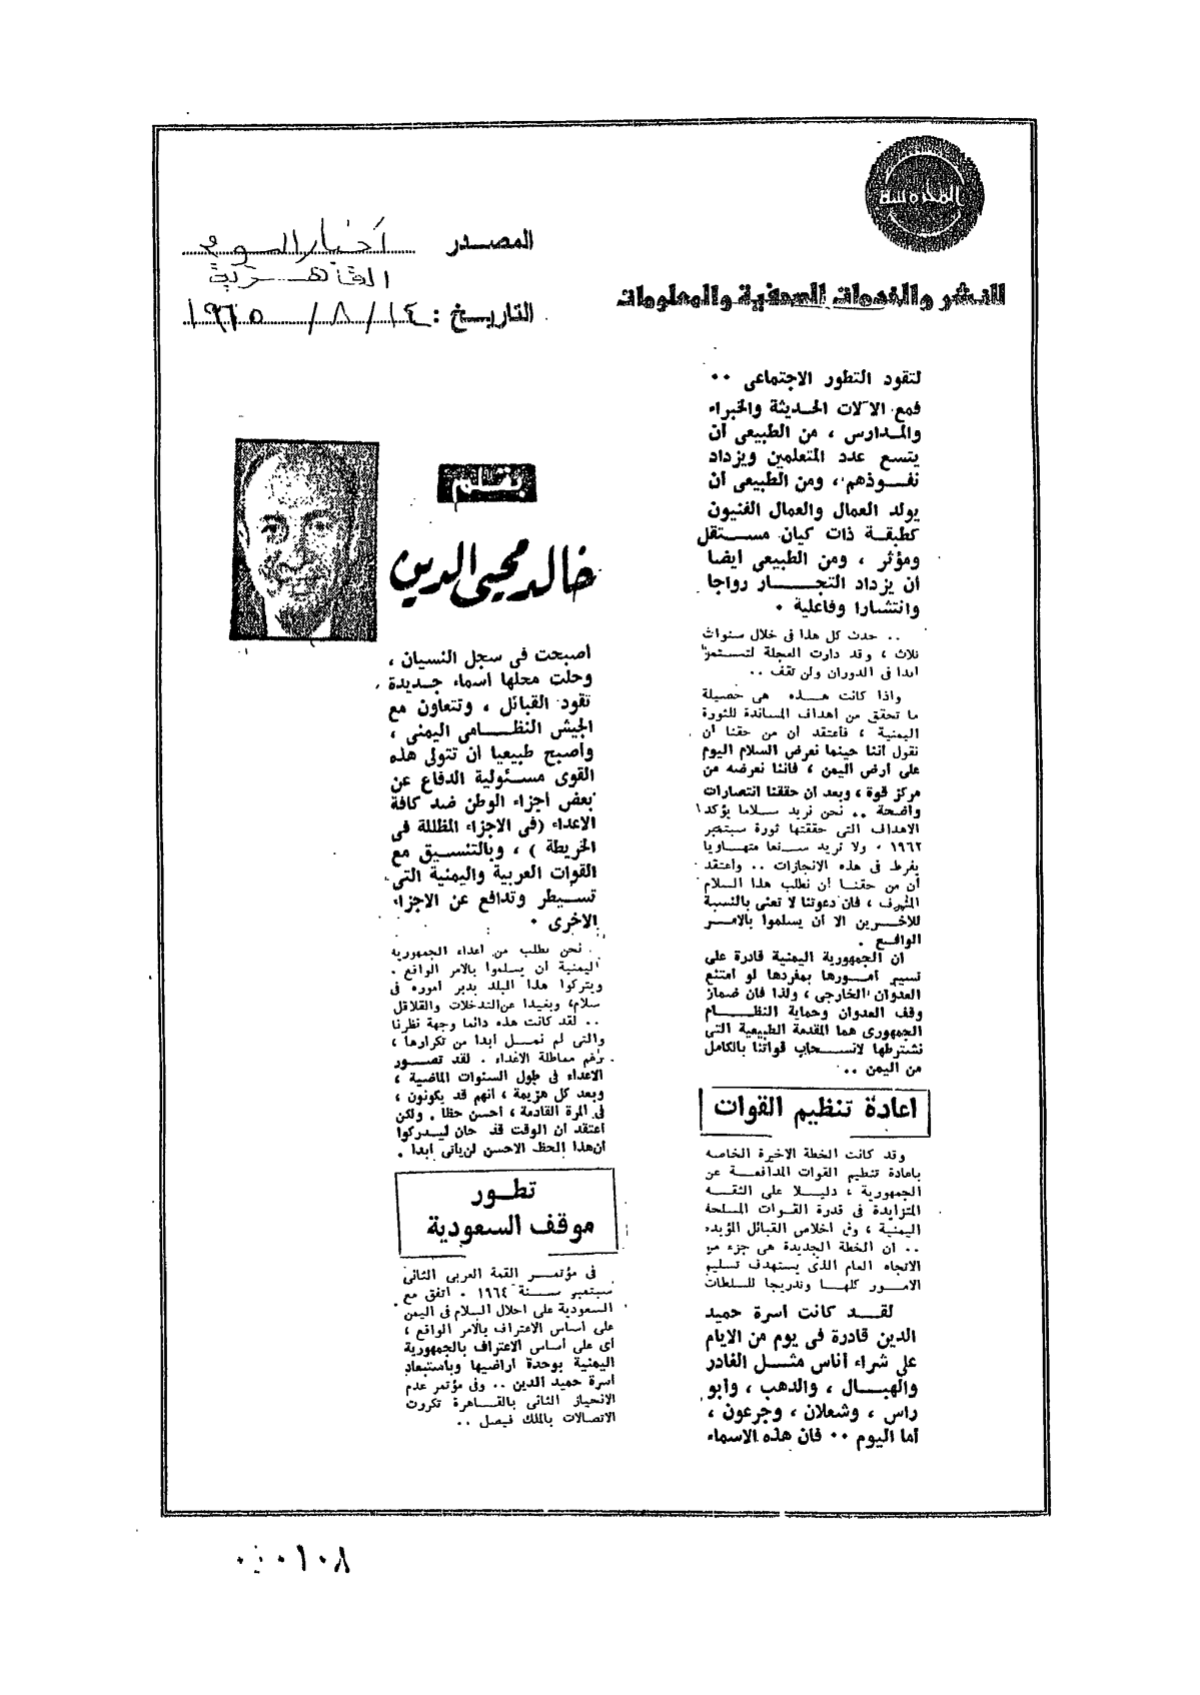 المحروسة
للنشر والخدمات الصحفية والمعلومات
المصدر : أخبار اليوم
القاهرية
التاريخ : ١٤ / ٨ / ١٩٦٥
لتقود التطور الاجتماعى ٠٠
فمع الآلات الحديثة والخبراء
والمدارس ، من الطبيعى أن
يتسع عدد المتعلمين ويزداد
نفوذهم ، ومن الطبيعى أن
يولد العمال والعمال الفنيون
كطبقة ذات كيان مستقل
ومؤثر ، ومن الطبيعى ايضا
أن يزداد التجار رواجا
وانتشارا وفاعلية ٠
.. حدث كل هذا فى خلال سنوات
ثلاث ، وقد دارت العجلة لتستمر
ابدا فى الدوران ولن تقف ..
واذا كانت هذه هى حصيلة
ما تحقق من أهداف المساندة للثورة
اليمنية ، فأعتقد أن من حقنا أن
نقول اننا حينما نعرض السلام اليوم
على أرض اليمن ، فاننا نعرضه من
مركز قوة ، وبعد أن حققنا انتصارات
واضحة .. نحن نريد سلاما يؤكد
الاهداف التى حققتها ثورة سبتمبر
١٩٦٢ ، ولا نريد سلما متهاويا
يفرط فى هذه الانجازات .. وأعتقد
أن من حقنا أن نطلب هذا السلام
المشرف ، فان دعوتنا لا تعنى بالنسبة
للآخرين الا أن يسلموا بالامر
الواقع .
ان الجمهورية اليمنية قادرة على
تسيير أمورها بمفردها لو امتنع
العدوان الخارجى ، ولذا فان ضمان
وقف العدوان وحماية النظام
الجمهورى هما المقدمة الطبيعية التى
نشترطها لانسحاب قواتنا بالكامل
من اليمن ..
اعادة تنظيم القوات
وقد كانت الخطة الاخيرة الخاصة
باعادة تنظيم القوات المدافعة عن
الجمهورية ، دليلا على الثقة
المتزايدة فى قدرة القوات المسلحة
اليمنية ، وفى اخلاص القبائل المؤيدة
.. ان الخطة الجديدة هى جزء من
الاتجاه العام الذى يستهدف تسليم
الامور كلها وتدريجا للسلطات
لقد كانت اسرة حميد
الدين قادرة فى يوم من الايام
على شراء أناس مثل الغادر
والهيال ، والذهب ، وأبو
راس ، وشعلان ، وجرعون ،
أما اليوم ٠٠ فان هذه الاسماء
بقلم
خالد محيى الدين
اصبحت فى سجل النسيان ،
وحلت محلها أسماء جديدة
تقود القبائل ، وتتعاون مع
الجيش النظامى اليمنى ،
وأصبح طبيعيا أن تتولى هذه
القوى مسئولية الدفاع عن
بعض أجزاء الوطن ضد كافة
الاعداء (فى الاجزاء المظللة فى
الخريطة ) ، وبالتنسيق مع
القوات العربية واليمنية التى
تسيطر وتدافع عن الاجزاء
الاخرى ٠
نحن نطلب من أعداء الجمهورية
اليمنية أن يسلموا بالامر الواقع .
ويتركوا هذا البلد يدبر أموره فى
سلام، وبعيدا عن التدخلات والقلاقل
.. لقد كانت هذه دائما وجهة نظرنا
والتى لم نمل ابدا من تكرارها ،
رغم مماطلة الاعداء . لقد تصور
الاعداء فى طول السنوات الماضية ،
وبعد كل هزيمة ، انهم قد يكونون ،
فى المرة القادمة ، أحسن حظا . ولكن
أعتقد أن الوقت قد حان ليدركوا
أن هذا الحظ الاحسن لن يأتى ابدا .
تطور
موقف السعودية
فى مؤتمر القمة العربى الثانى
سبتمبر سنة ١٩٦٤ . اتفق مع
السعودية على احلال السلام فى اليمن
على أساس الاعتراف بالامر الواقع ،
أى على أساس الاعتراف بالجمهورية
اليمنية بوحدة اراضيها وباستبعاد
اسرة حميد الدين .. وفى مؤتمر عدم
الانحياز الثانى بالقاهرة تكررت
الاتصالات بالملك فيصل ..